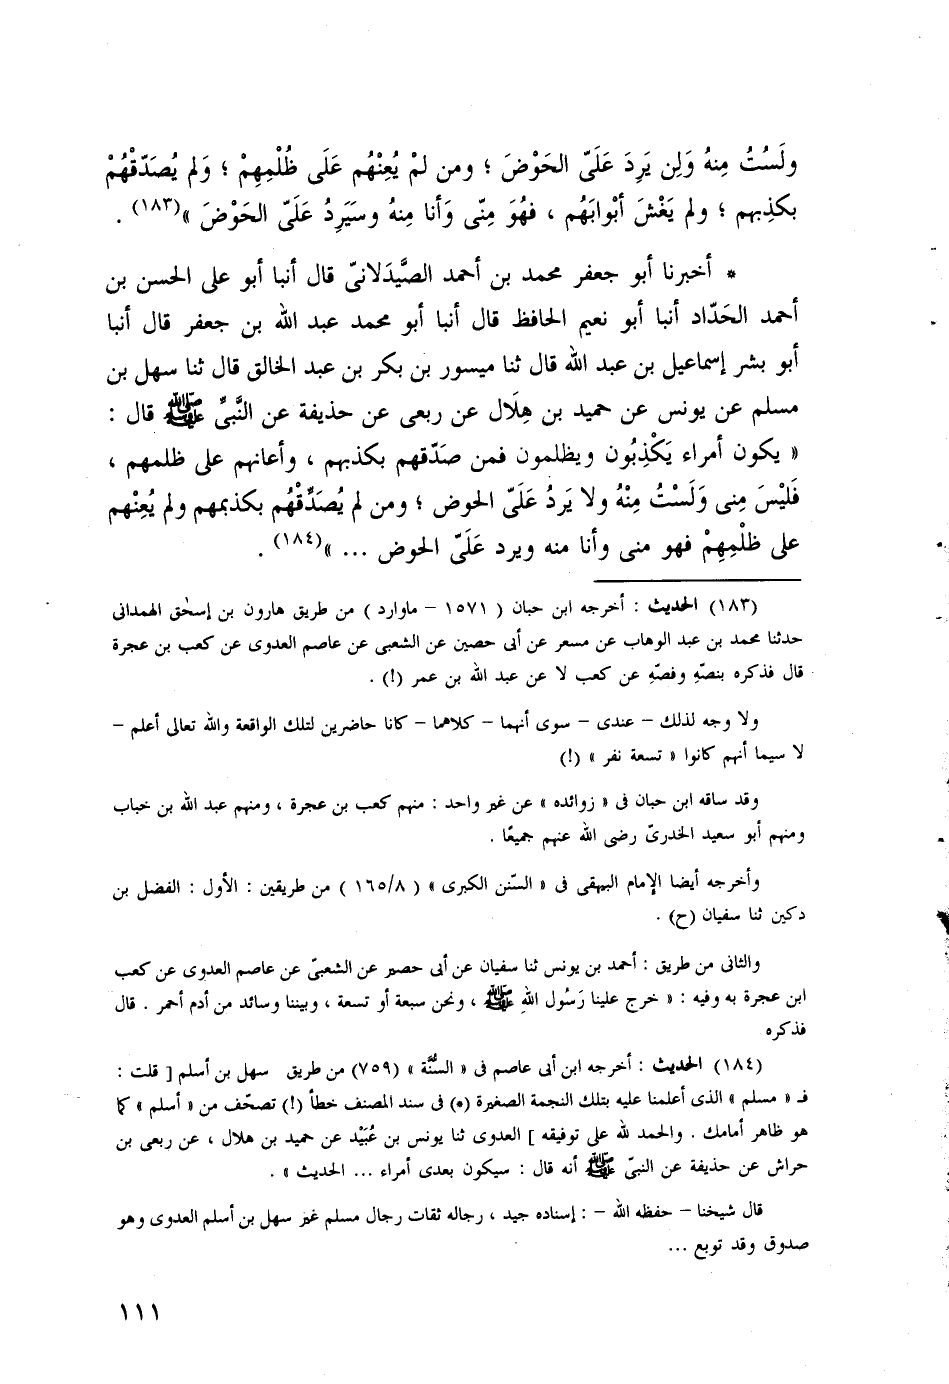 ولَسْتُ مِنهُ وَلِن يَرِدَ عَلَىّ الحَوْضَ ؛ ومن لمْ يُعِنْهُم عَلَى ظُلْمِهِمْ ؛ وَلم يُصَدّقْهُمْ
بكَذِبهم ؛ ولم يَغْشَ أبْوابَهُم ، فهُوَ مِنّى وَأنا مِنهُ وسَيَرِدُ عَلَىّ الحَوْضَ »(١٨٣) .
* أخبرنا أبو جعفر محمد بن أحمد الصَّيدَلانىّ قال أنبا أبو على الحسن بن
أحمد الحَدّاد أنبا أبو نعيم الحافظ قال أنبا أبو محمد عبد الله بن جعفر قال أنبا
أبو بشر إسماعيل بن عبد الله قال ثنا ميسور بن بكر بن عبد الخالق قال ثنا سهل بن
مسلم عن يونس عن حميد بن هِلَال عن ربعى عن حذيفة عن النَّبىِّ ﷺ قال :
« يكون أمراء يَكْذِبُون ويظلمون فمن صَدّقهم بكذبهم ، وأعانهم على ظلمهم ،
فَليْسَ مِنى وَلَسْتُ مِنْهُ ولا يَردُ عَلَىّ الحوض ؛ ومن لم يُصَدِّقْهُم بكذبهم ولم يُعِنْهم
على ظلْمِهِمْ فهو منى وأنا منه ويرد عَلَىّ الحوض ... »(١٨٤) .
(١٨٣) الحديث : أخرجه ابن حبان ( ١٥٧١ - ماوارد ) من طريق هارون بن إسحٰق الهمدانى
حدثنا محمد بن عبد الوهاب عن مسعر عن أبى حصين عن الشعبى عن عاصم العدوى عن كعب بن عجرة
قال فذكره بنصّهِ وفصّهِ عن كعب لا عن عبد الله بن عمر (!) .
ولا وجه لذلك - عندى - سوى أنهما - كلاهما - كانا حاضرين لتلك الواقعة والله تعالى أعلم -
لا سيما أنهم كانوا « تسعة نفر » (!)
وقد ساقه ابن حبان فى « زوائده » عن غير واحد : منهم كعب بن عجرة ، ومنهم عبد الله بن خباب
ومنهم أبو سعيد الخدرىّ رضى الله عنهم جميعًا .
وأخرجه أيضا الإمام البيهقى فى « السّنن الكبرى » ( ١٦٥/٨ ) من طريقين : الأول : الفضل بن
دكين ثنا سفيان (ح) .
والثانى من طريق : أحمد بن يونس ثنا سفيان عن أبى حصير عن الشعبىّ عن عاصم العدوى عن كعب
ابن عجرة به وفيه : « خرج علينا رَسُول اللهِ ﷺ ، ونحن سبعة أو تسعة ، وبيننا وسائد من أدم أحمر . قال
فذكره
(١٨٤) الحديث : أخرجه ابن أبى عاصم فى « السُّنَّة » (٧٥٩) من طريق سهل بن أسلم [ قلت :
فـ « مسلم » الذى أعلمنا عليه بتلك النجمة الصغيرة (*) فى سند المصنف خطأ (!) تصحّف من « أسلم » كما
هو ظاهر أمامك . والحمد لله على توفيقه ] العدوى ثنا يونس بن عُبَيْد عن حميد بن هلال ، عن ربعى بن
حراش عن حذيفة عن النبىّ ﷺ أنه قال : سيكون بعدى أمراء ... الحديث » .
قال شيخنا - حفظه الله - : إسناده جيد ، رجاله ثقات رجال مسلم غير سهل بن أسلم العدوى وهو
صدوق وقد توبع ...
١١١